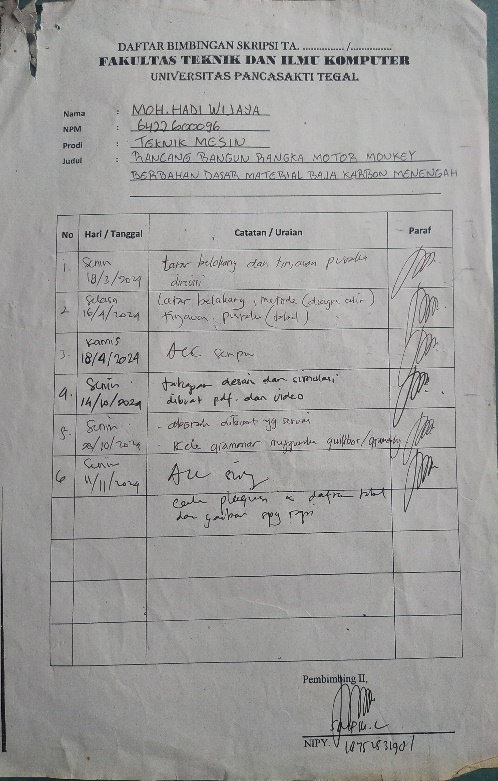 DAFTAR BIMBINGAN SKRIPSI TA. ............... /...............
FAKULTAS TEKNIK DAN ILMU KOMPUTER
UNIVERSITAS PANCASAKTI TEGAL
Nama : MOH. HADI WIJAYA
NPM : 6422600096
Prodi : TEKNIK MESIN
Judul : RANCANG BANGUN RANGKA MOTOR MONKEY
BERBAHAN DASAR MATERIAL BAJA KARBON MENENGAH
No Hari / Tanggal Catatan / Uraian Paraf
1. Senin latar belakang dan tinjauan pustaka
18/3/2024
2. Selasa Latar belakang, metode (diagram alir)
16/4/2024 tinjauan pustaka (tabel)
3. Kamis
18/4/2024 Acc sempro
4. Senin tahapan desain dan simulasi
14/10/2024 dibuat pdf. dan video
5. Senin - abstrak dibuat yg sesuai
28/10/2024 - Kde grammar
6 Senin Acc
11/11/2024
cek plagiasi & daftar tabel
dan gambar
Pembimbing II,
NIPY.